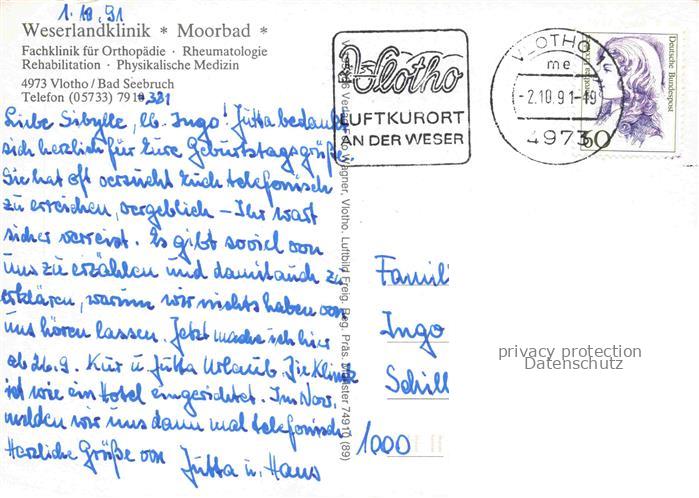 1.10.91
Weserlandklinik * Moorbad *
Fachklinik für Orthopädie · Rheumatologie
Rehabilitation · Physikalische Medizin
4973 Vlotho / Bad Seebruch
Telefon (05733) 7910 331
Liebe Sibylle, lb. Ingo! Jutta bedankt
sich herzlich für Eure Geburtstagsgrüße.
Sie hat oft versucht Euch telefonisch
zu erreichen, vergeblich – Ihr wart
sicher verreist. Es gibt soviel von
uns zu erzählen und damit auch zu
erklären, warum wir nichts haben von
uns hören lassen. Jetzt mache ich hier
ab 26.9. Kur u. Jutta Urlaub. Die Klinik
ist wie ein Hotel eingerichtet. Im Nov.
melden wir uns dann mal telefonisch
Herzliche Grüße von Jutta u. Hans
Verlag Foto Wagner, Vlotho. Luftbild Freig. Reg. Präs. Münster 74910 (89)
Vlotho
LUFTKURORT
AN DER WESER
VLOTHO
me
-2.10.91-19
4973
Deutsche Bundespost
60
Famil
Ingo
Schill
1000
privacy protection
Datenschutz